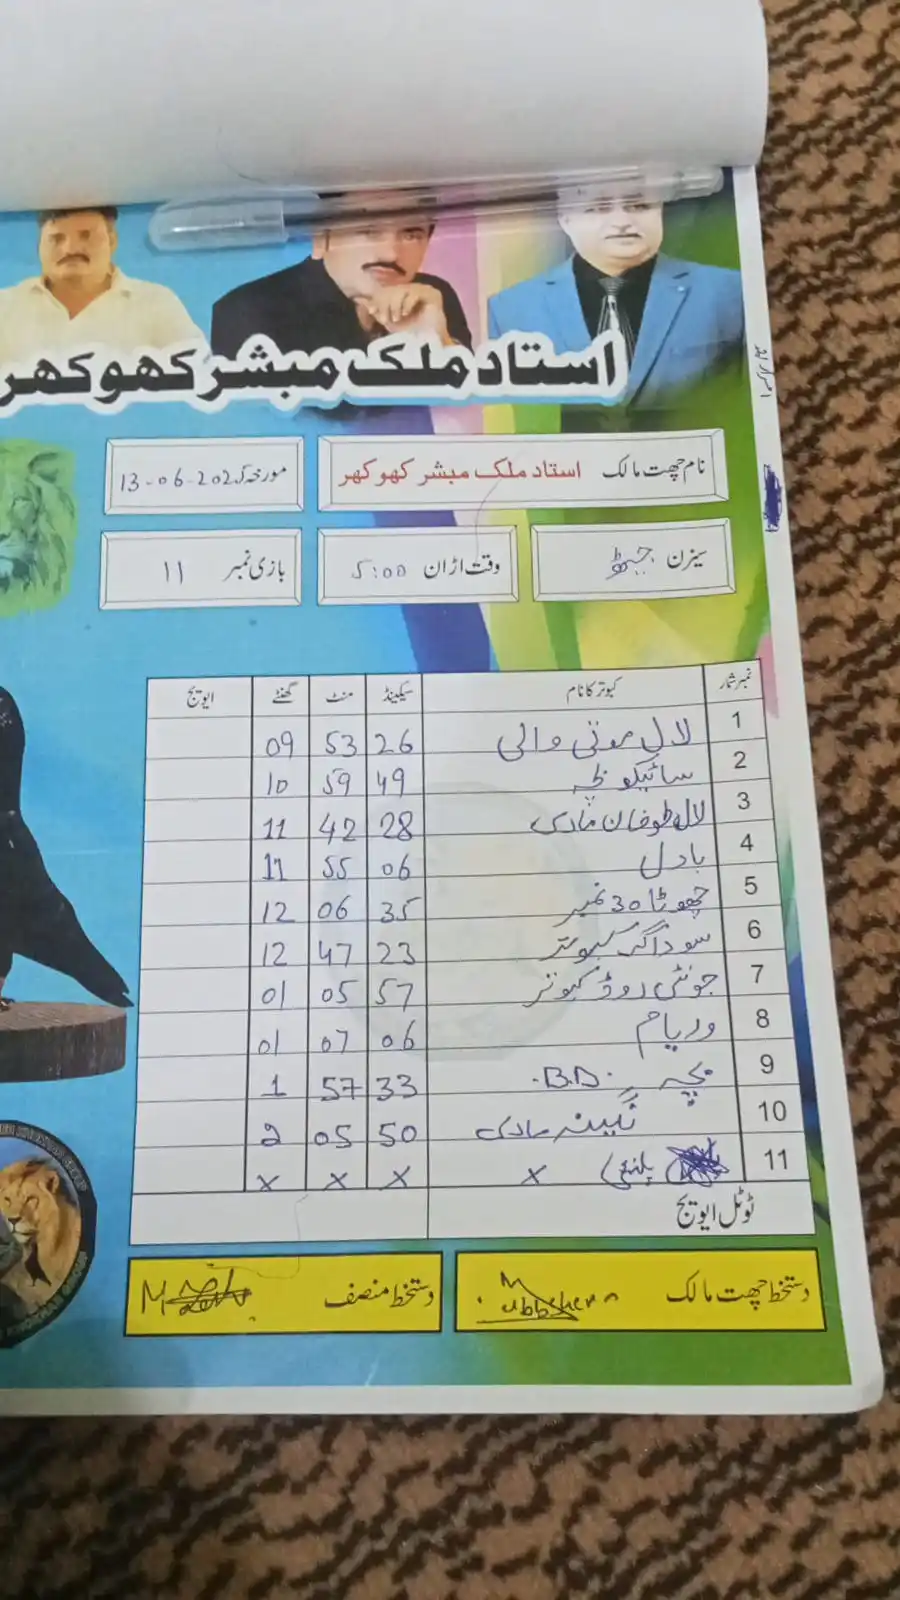 استاد ملک مبشر کھوکھر
نام چھت مالک استاد ملک مبشر کھوکھر مورخہ 13-06-2025
سیزن جیٹھ وقت اڑان 5:00 بازی نمبر 11
نمبر شمار کبوتر کا نام سیکینڈ منٹ گھنٹے ایوریج
1 لال موتی والی 26 53 09
2 سائیکو 49 59 10
3 لال طوفان مادی 28 42 11
4 بادل 06 55 11
5 چھوٹا 30 نمبر 35 06 12
6 سوداگر کبوتر 23 47 12
7 جونئی روڈ کبوتر 57 05 01
8 وریام 06 07 01
9 بچہ B.D. 33 57 1
10 نگینہ مادی 50 05 2
11 پلنئی x x x x
ٹوٹل ایوریج
دستخط چھت مالک Mubbsher دستخط منصف